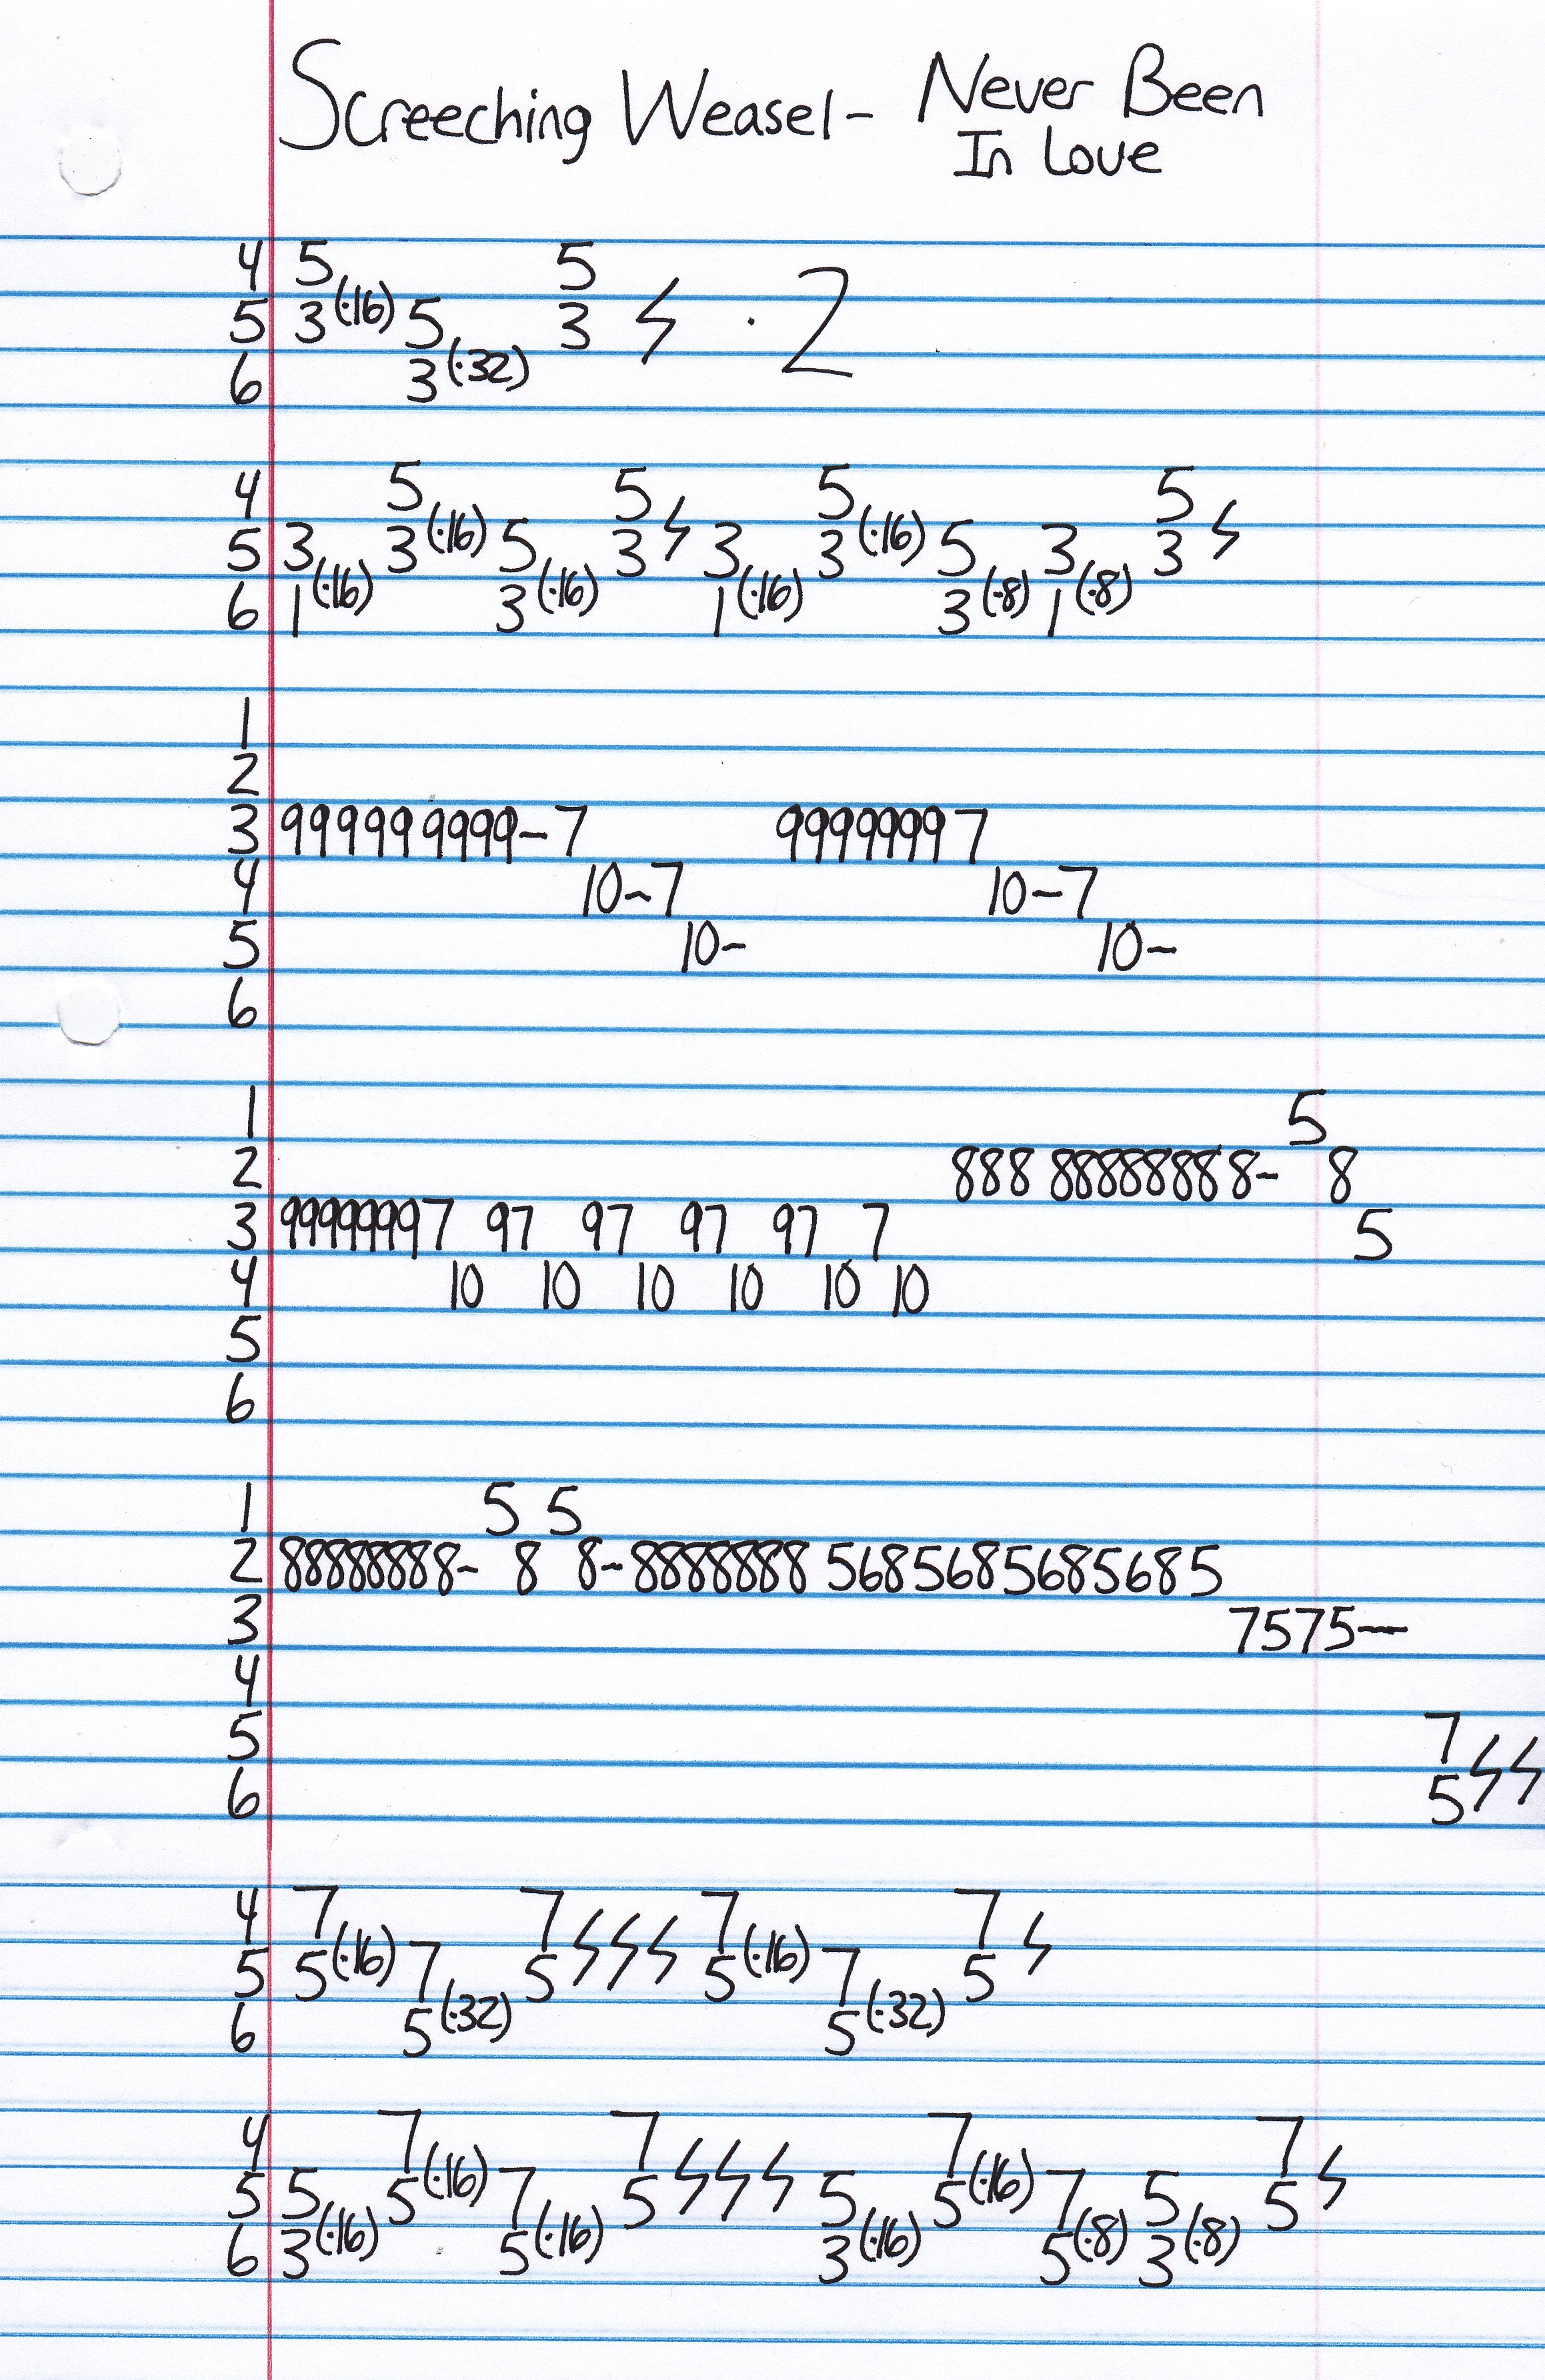 Screeching Weasel - Never Been
In Love
4 5 5
5 3(·16) 5 3 ϟ · 2
6 3(·32)
4 5 5 5 5
5 3 3(·16) 5 3 ϟ 3 3(·16) 5 3 3 ϟ
6 1(·16) 3(·16) 1(·16) 3(·8) 1(·8)
1
2
3 999999 9999-7 99999997
4 10-7 10-7
5 10- 10-
6
1 5
2 888 888888888- 8
3 999999997 97 97 97 97 7 5
4 10 10 10 10 10 10
5
6
1 5 5
2 888888888- 8 8-88888888 5685685685685
3 7575--
4
5 7 ϟϟ
6 5
4 7 7 7 7
5 5(·16) 7 5 ϟϟϟ 5(·16) 7 5 ϟ
6 5(·32) 5(·32)
4 7 7 7 7
5 5 5(·16) 7 5 ϟϟϟ 5 5(·16) 7 5 5 ϟ
6 3(·16) 5(·16) 3(·16) 5(·8) 3(·8)